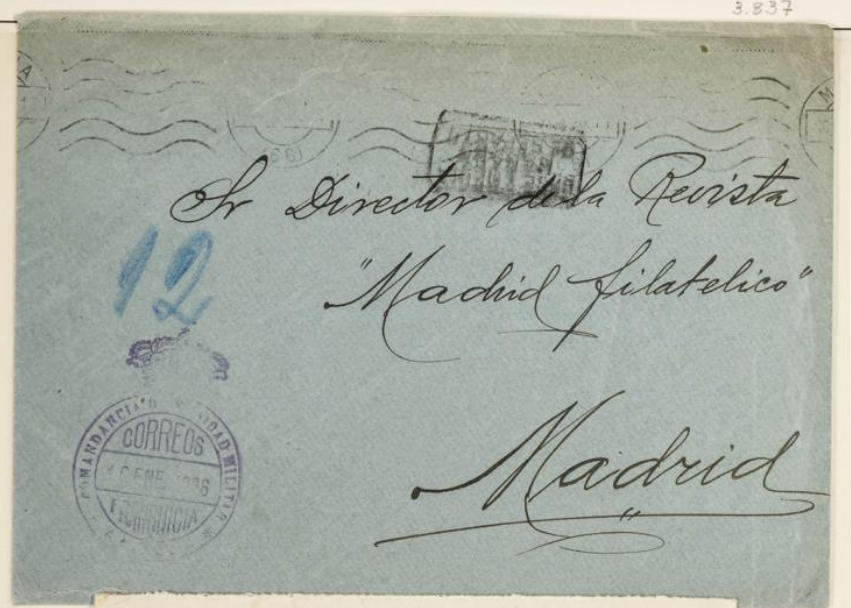 3.837
Sr Director de la Revista
"Madrid filatelico"
12
Madrid
COMANDANCIA SANIDAD MILITAR
CORREOS
ENE
FRANQUICIA